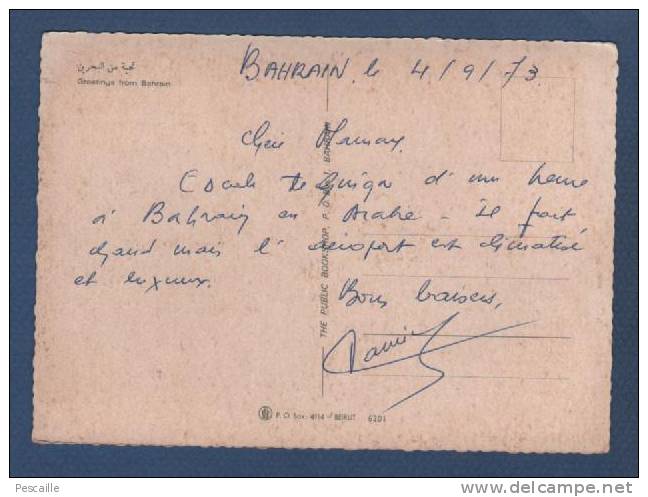 تحية من البحرين
Greetings from Bahrain
BAHRAIN. le 4/9/73
Chère Maman,
Escale technique d'une heure
à Bahrain en Arabie - Il fait
chaud mais l'aéroport est climatisé
et luxueux.
Bons baisers,
THE PUBLIC BOOKSHOP, P. O. BAHRAIN
P. O. Box. 4114 - BEIRUT 6201
Pescaille
www.delcampe.net